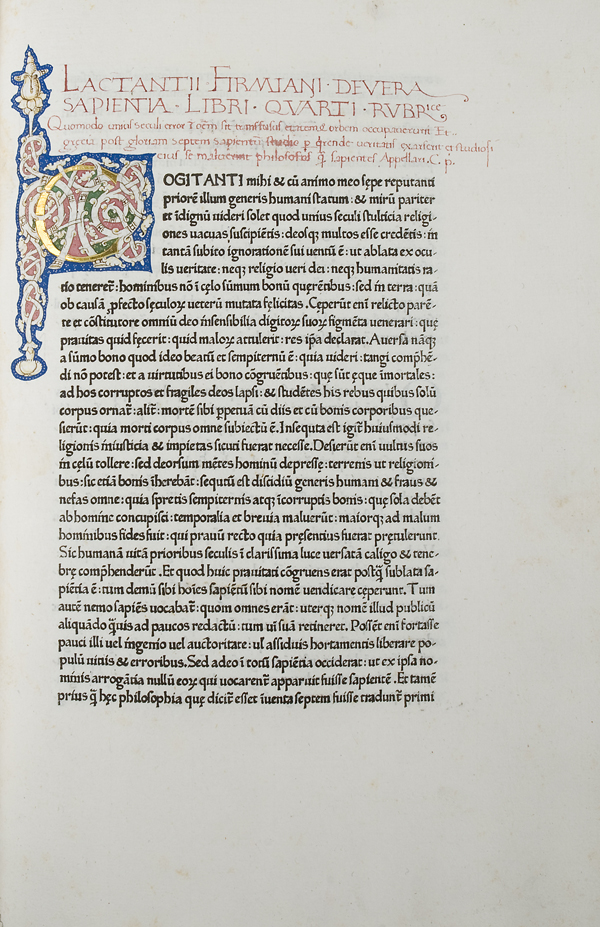 LACTANTII · FIRMIANI · DE VERA
SAPIENTIA · LIBRI · QVARTI · RVBRice
Quomodo unius seculi error
grecia post gloriam septem sapientū studio p
se maluerint philosophos q̄ sapientes Appellari. C. p.
COGITANTI mihi & cū animo meo sępe reputanti
priorē illum generis humani statum : & mirū pariter
et īdignū uideri solet quod unius seculi stulticia religi-
ones uacuas suscipiētis : deosq; multos esse credētis : in
tantā subito ignorationē sui uentū ē : ut ablata ex ocu-
lis ueritate : neq; religio ueri dei : neq; humanitatis ra-
tio teneret̄ : hominibus nō ī cęlo sūmum bonū querētibus : sed in terra : quā
ob causā p̱fecto sęculoꝝ ueterū mutata fęlicitas. Cęperūt enī relicto parē-
te et cōstitutore omniū deo insensibilia digitoꝝ suoꝝ figmēta uenerari : quę
prauitas quid fęcerit : quid maloꝝ attulerit : res ipa declarat. Auersa nāq;
a sūmo bono quod ideo beatū et sempiternū ē : quia uideri : tangi comphē-
di nō potest : et a uirtutibus ei bono cōgruētibus : quę sūt ęque īmortales :
ad hos corruptos et fragiles deos lapsi : & studētes his rebus quibus solū
corpus ornat̄ : alit̄ : mortē sibi p̱petuā cū diis et cū bonis corporibus que-
sierūt : quia morti corpus omne subiectū ē. Insequta est igit̄ huiusmodi re-
ligionis iniusticia & impietas sicuti fuerat necesse. Desierūt enī uultus suos
in cęlū tollere : sed deorsum mētes hominū depressę : terrenis ut religioni-
bus : sic etiā bonis īherebāt : sequtū est discidiū generis humani & fraus &
nefas omne : quia spretis sempiternis atq; īcorruptis bonis : quę sola debēt
ab homine concupisci : temporalia et breuia maluerūt : maiorq; ad malum
hominibus fides fuit : qui prauū recto quia pręsentius fuerat prętulerunt.
Sic humanā uitā prioribus seculis ī clarissima luce uersatā caligo & tene-
brę comphenderūt. Et quod huic prauitati cōgruens erat postq̄ sublata sa-
piētia ē : tum demū sibi hoīes sapiētiū sibi nomē uendicare cęperunt. Tum
autē nemo sapiēs uocabat̄ : quom omnes erāt : uterq; nomē illud publicū
aliquādo q̄uis ad paucos redactū : tum uī suā retineret. Possēt enī fortasse
pauci illi uel ingenio uel auctoritate : ul' assiduis hortamentis liberare po-
pulū uitiis & erroribus. Sed adeo ī totū sapiētia occiderat : ut ex ipsa no-
minis arrogātia nullū eoꝝ qui uocarent̄ apparuit fuisse sapientē. Et tamē
prius q̄ hęc philosophia quę dicit̄ esset īuenta septem fuisse tradunt̄ primi